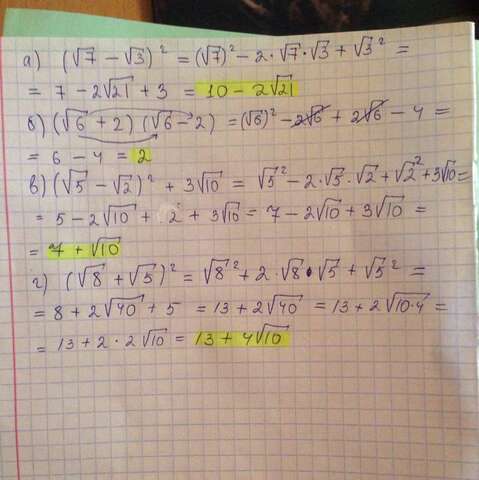 а) (√7 − √3)² = (√7)² − 2·√7·√3 + √3² =
= 7 − 2√21 + 3 = 10 − 2√21
б) (√6 + 2) (√6 − 2) = (√6)² − 2√6 + 2√6 − 4 =
= 6 − 4 = 2
в) (√5 − √2)² + 3√10 = √5² − 2·√5·√2 + √2² + 3√10 =
= 5 − 2√10 + 2 + 3√10 = 7 − 2√10 + 3√10 =
= 7 + √10
г) (√8 + √5)² = √8² + 2·√8·√5 + √5² =
= 8 + 2√40 + 5 = 13 + 2√40 = 13 + 2√10·4 =
= 13 + 2·2√10 = 13 + 4√10